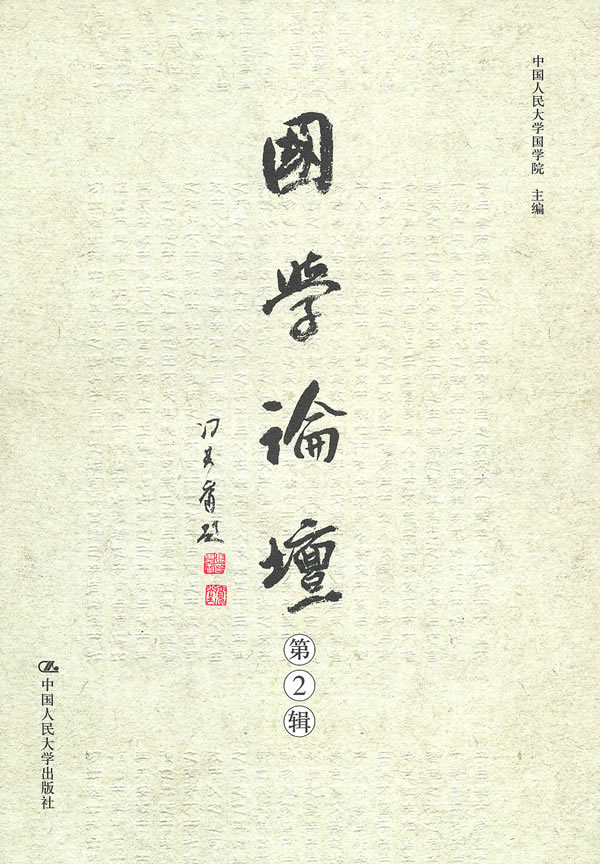 中国人民大学国学院 主编
國學論壇
冯其庸题
第2辑
中国人民大学出版社